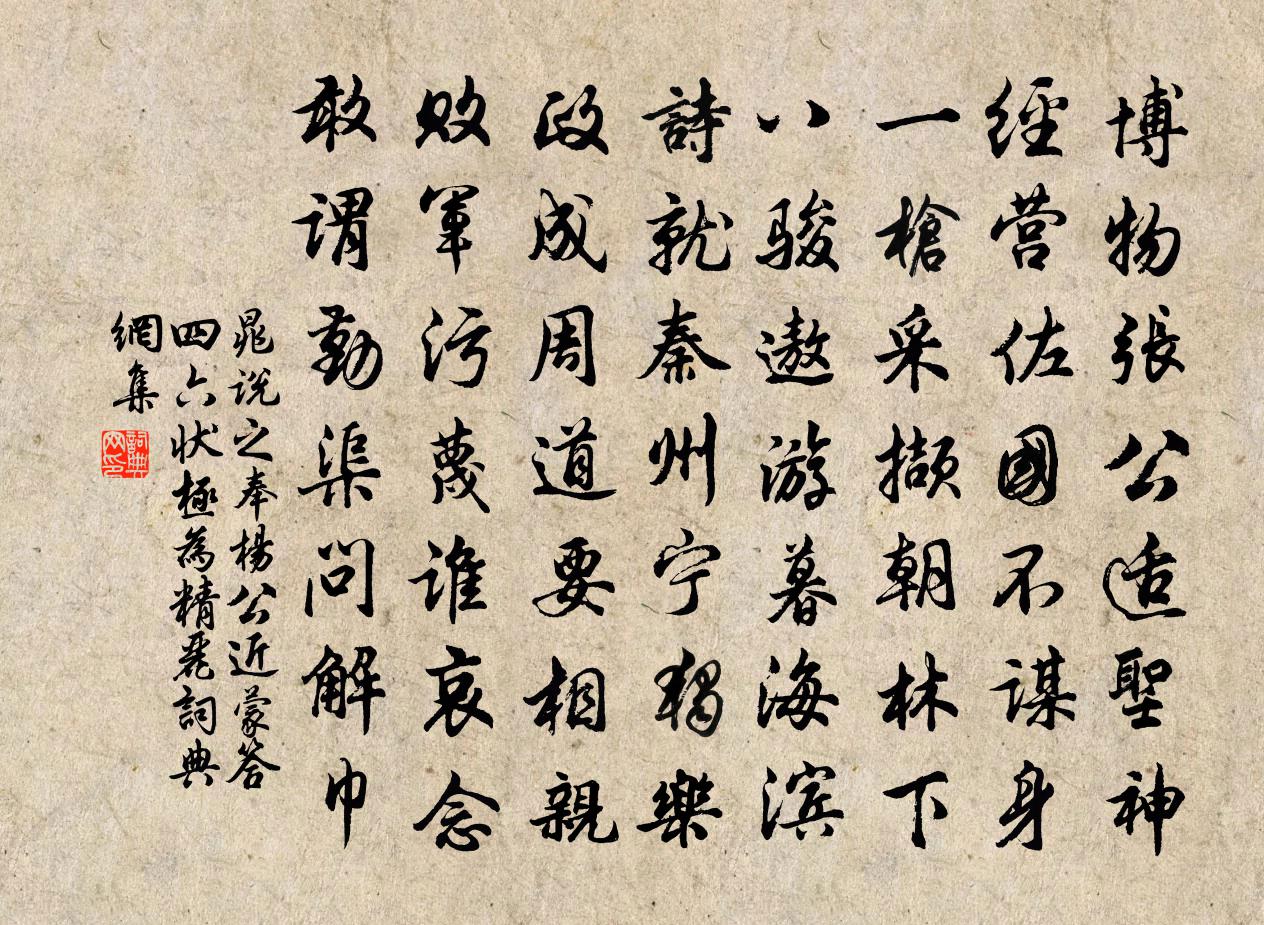 博物張公适聖神
經营佐國不謀身
一槍采擷朝林下
八骏遨游暮海滨
詩就秦州宁獨樂
政成周道要相親
败軍污蔑谁哀念
敢谓勤渠问解巾
晁说之奉楊公近蒙答
四六状極為精麗詞典
網集
詞典网印